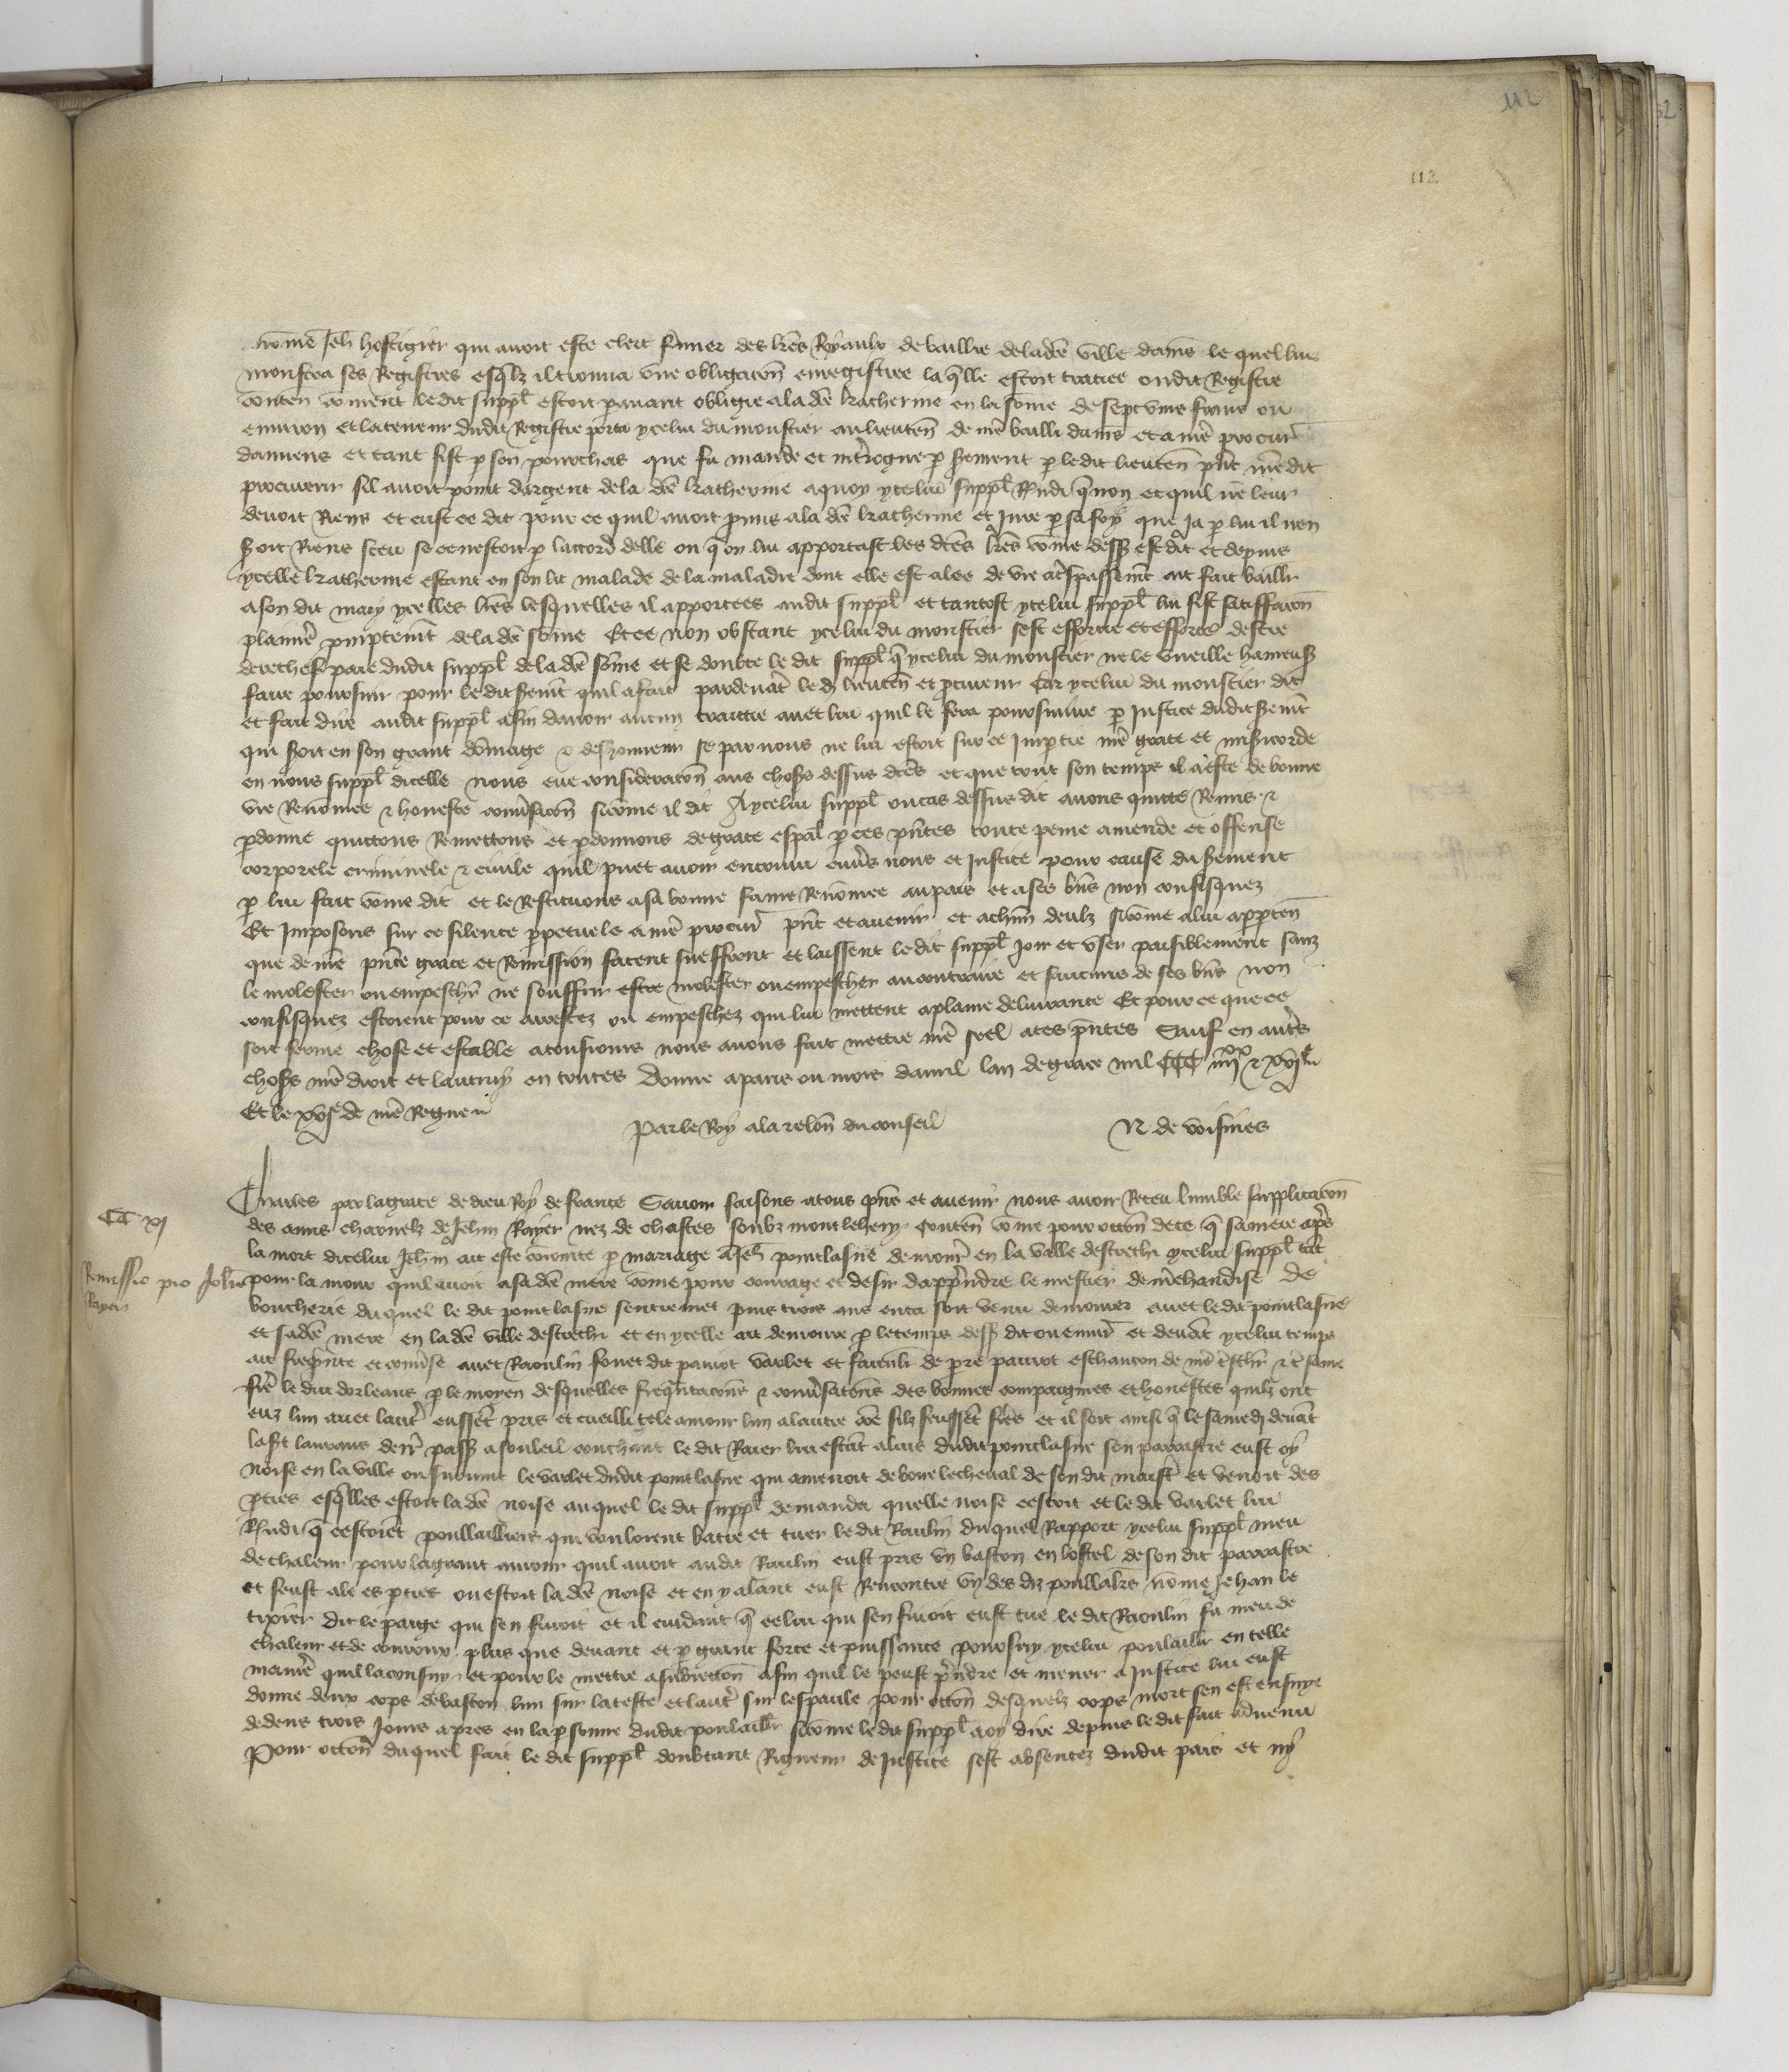 112
112
nōme Jeh hostigier qui avoit este clerc fermier des lres Royaulx de baillie de lade ville damis le quel lui
monstra ses Registres esqlz il trouva une obligacōn enregistree la qlle estoit traciee ou dit Registre
conten cōment ledit suppl estoit paravant obligie a la dce katherine en la sōme de sept vins frans ou
environ et la teneur dudit Registre porta ycelui du monstier au lieuten de nre bailli damis et a nre procur
damiens et tant fist p son pourchas que fu mande et intrrogue p serement p le dit lieuten pnt nre dit
procureur sil avoit point dargent de la dce katherine a quoy ycelui suppl Rndi q non et quil ne leur
devoit Riens et eust ce dit pour ce quil avoit pmis a la dce katherine et Jure p sa foy que Ja p lui il nen
seroit Riens sceu se ce nestoit p laccord delle ou q on lui apportast les dces lres cōme dess est dit et depuis
ycelle katherine estant en son lit malade de la maladie dont elle est alee de vie a trspassemt ait fait baillr
a son dit mary ycelles lres lesquelles il apportees audit suppl et tantost ycelui suppl lui fist satiffacōn
plainne pmptemt de la dce sōme Et ce non obstant ycelui du monstier sest efforcie et efforce destre
derechef paie dudit suppl de la dce sōme et se doubte le dit suppl q ycelui du monstier ne le vueille haineus
faire poursuir pour le dit seremt quil a fait pardevāt le d lieuten et pcureur Car ycelui du monstier dit
et fait dire audit suppl afin davoir aucun traittie avec lui quil le fera poursuivre p Justice dudit seremt
qui seroit en son grant dōmage & deshonneur se par nous ne lui estoit sur ce Impartie nre grace et misericorde
en nous suppl dicelle nous eue consideracōn aus choses dessus dces et que tout son temps il a este de bonne
vie Renōmee & honeste convsacōn sicōme il dit A ycelui suppl ou cas dessus dit avons quitte Remis &
pdonne quittons Remettons et pdonnons de grace espal p ces pntes toute peine amende et offense
corporele criminele & civile quil puet avoir encouru envs nous et Justice pour cause du serement
p lui fait cōme dit et le Restituons a sa bonne fame Renōmee au pais et a ses bns non confisquez
Et Imposons sur ce silence ppetuele a nre procur pnt et avenir et a chun deulz sicōme a lui appten
que de nre pnte grace et Remission facent sueffrent et laissent le dit suppl Joir et user paisiblement sanz
le molester ou empeschr ne souffrir estre molester ou empescher au contraire et saucuns de ses bns non
confisquez estoient pour ce arrestez ou empeschez quilui mettent a plaine delivrance Et pour ce que ce
soit ferme chose et estable a tousiours nous avons fait mettre nre seel a ces pntes Sauf en autrs
choses nre droit et lautruy en toutes Donne a paris ou mois davril lan de grace mil CCC iiii xx & xvi
Et le xvi de nre Regne
Par le Roy a la relōn du conseil N de voisines
Charles par la grace de dieu Roy de france Savoir faisons a tous pns et avenir nous avoir Receu lumble supplicacōn
des amis charnelz de Jehin Rayer nez de chastes soubz montlehery conten cōme pour occōn de ce q sa mere aps
la mort dicelui Jehin ait este conioincte p mariage a Jeh pointlasne demour en la ville destrechi ycelui suppl tāt
pour lamour quil avoit a sa dce mere cōme pour courage et desir dapprndre le mestier de mrchandise de
boucherie du quel le dit pointlasne sentremet puis trois ans enca soit venu demourer avec le dit pointlasne
et sa dce mere en la dce ville destrechi et en ycelle ait demoure p le temps dess dit ou envir et devāt ycelui temps
ait frequnte et convse avec Raoulin fouet dit paviot varlet et familr de pre paviot eschancon de nre trschr & tr fame
fre le duc dorleans p le moyen desquelles frequntacōns & convsacōns des bonnes compaignies et honestes quilz ont
euz lun avec lautr eussēt pris et cueilli tele amour lun a lautre cōe silz feussēt fres et il soit ainsi q le samedi devāt
la st laurans denr pass a souleil couchant le dit Raier lui estāt a luis dudit pointlasne son parrastre eust oy
noise en la ville ou survint le varlet dudit pointlasne qui amenoit de boire le cheval de son dit maistr et venoit des
pties esqlles estoit la dce noise auquel le dit suppl demanda quelle noise cestoit et le dit varlet lui
Rndi q cestoiēt poullailliers qui vouloient batre et tuer le dit Raulin duquel Rapport ycelui suppl meu
de chaleur pour la grant amour quil avoit audit Raulin eust pris un baston en lostel de son dit parrastre
et feust ale es pties ou estoit la dce noise et en y alant eust Rencontre un des dz poullalrs nōme Jehan le
tixier dit le paige qui sen fuioit et il cuidant q celui qui sen fuioit eust tue le dit Raoulin fu meu de
chaleur et de courroux plus que devant et p grant force et puissance poursuy ycelui poulaillr en telle
maniēr quil laconsuy et pour le mettre a subieccōn afin quil le peust prndre et mener a Justice lui eust
donne deux cops de baston lun sur la teste et lautr sur lespaule pour occōn desquelz cops mort sen est ensuye
dedens trois Jours apres en la psonne dudit poulaillr sicōme le dit suppl a oy dire depuis le dit fait advenu
Pour occōn duquel fait le dit suppl doubtant Rigueur de Justice sest absentez dudit pais et ny
Ca xi
Remissio pro Johe
Rayer